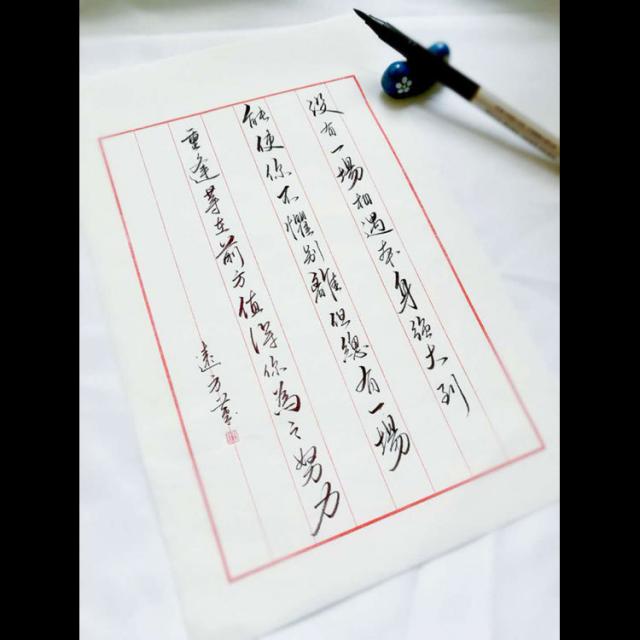 没有一場相遇本身强大到
能使你不懼别離但總有一場
重逢等在前方值得你為之努力
遠方